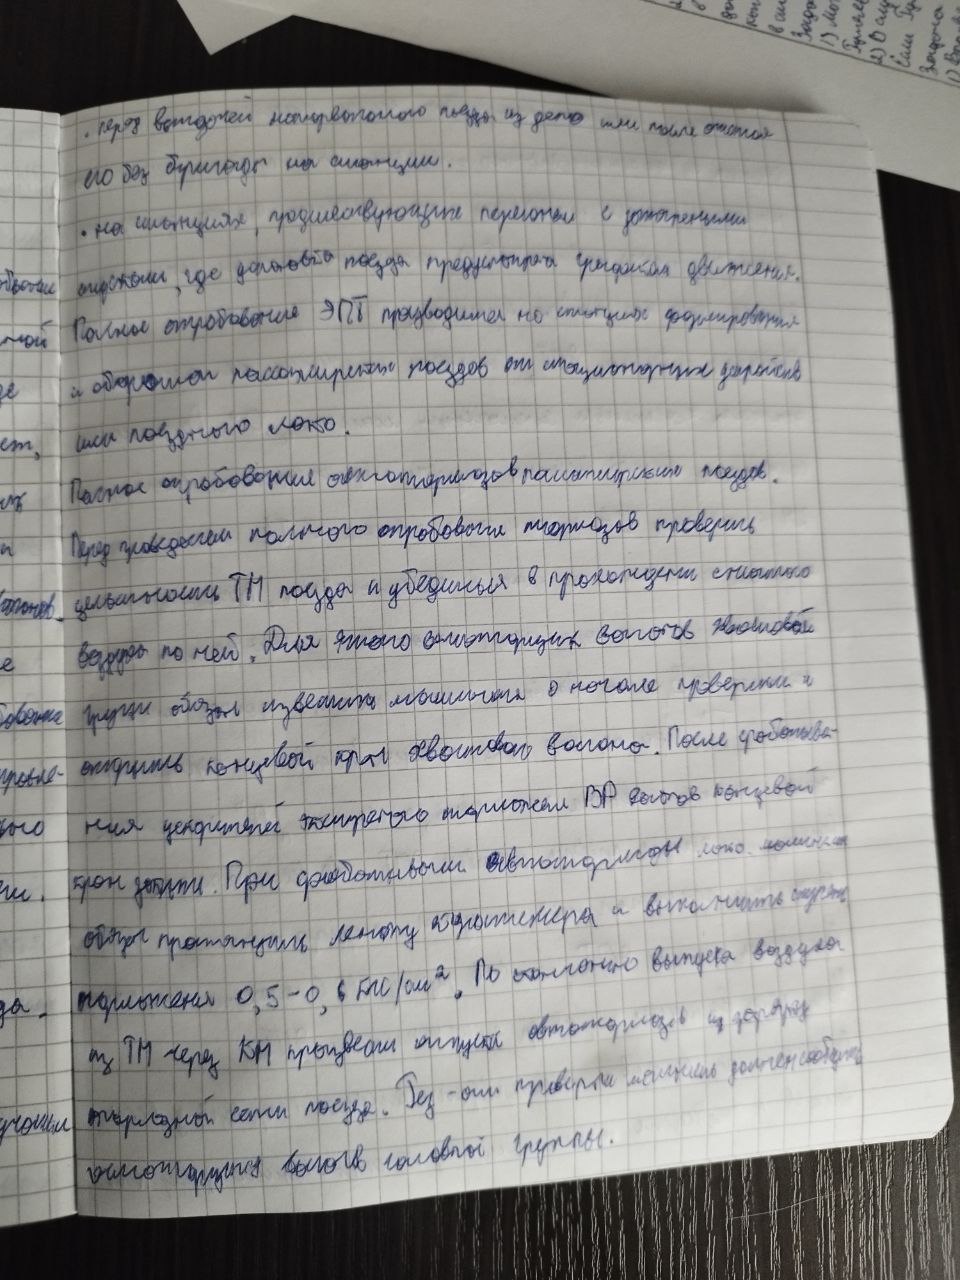 • перед выдачей моторвагонного поезда из депо или после отстоя
его без бригады на станции.
• на станциях, предшествующих перегонам с затяжными
спусками, где остановка поезда предусмотрена графиком движения.
Полное опробование ЭПТ производится на станциях формирования
и оборота пассажирских поездов от стационарных устройств
или поездного локо.
Полное опробование автотормозов пассажирских поездов.
Перед проведением полного опробования тормозов проверить
целостность ТМ поезда и убедиться в прохождении сжатого
воздуха по ней. Для этого осмотрщик вагонов хвостовой
группы обязан известить машиниста о начале проверки и
открыть концевой кран хвостового вагона. После срабатыва-
ния ускорителей экстренного торможения ВР вагонов концевой
кран закрыть. При срабатывании автотормозов локо. машинист
обязан протянуть ленту скоростемера и выполнить
торможения 0,5-0,6 кгс/см². По окончанию выпуска воздуха
из ТМ через КМ произвести отпуск автотормозов и зарядку
тормозной сети поезда. Рез-ты проверки машинист должен сообщить
осмотрщику вагонов головной группы.